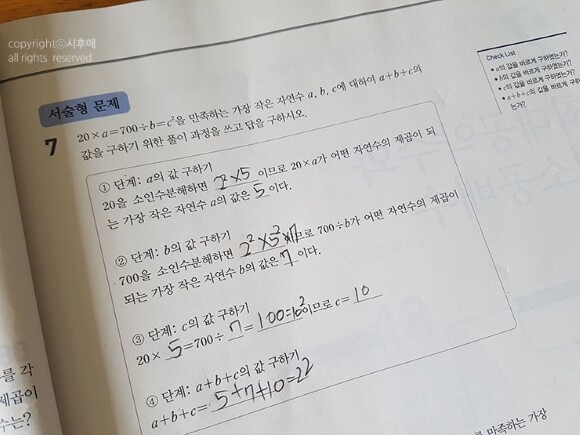 copyrightⓒ시후애
all rights reserved
Check List
a의 값을 바르게 구하였는가?
b의 값을 바르게 구하였는가?
c의 값을 바르게 구하였는가?
a+b+c의 값을 바르게 구하였는가?
서술형 문제
7 20×a=700÷b=c²을 만족하는 가장 작은 자연수 a, b, c에 대하여 a+b+c의
값을 구하기 위한 풀이 과정을 쓰고 답을 구하시오.
① 단계: a의 값 구하기
20을 소인수분해하면 2²×5 이므로 20×a가 어떤 자연수의 제곱이 되
는 가장 작은 자연수 a의 값은 5 이다.
② 단계: b의 값 구하기
700을 소인수분해하면 2²×5²×7 므로 700÷b가 어떤 자연수의 제곱이
되는 가장 작은 자연수 b의 값은 7 이다.
③ 단계: c의 값 구하기
20× 5 =700÷ 7 = 100=10² 이므로 c= 10
④ 단계: a+b+c의 값 구하기
a+b+c= 5+7+10=22
를 각
제곱이
수는?
를 만족하는 가장